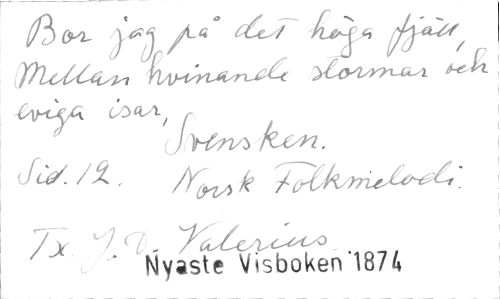 Bor jag på det höga fjäll,
Mellan hvinande stormar och
eviga isar,
Svensken.
Sid. 12. Norsk Folkmelodi.
Tx. J. D. Valerius.
Nyaste Visboken 1874